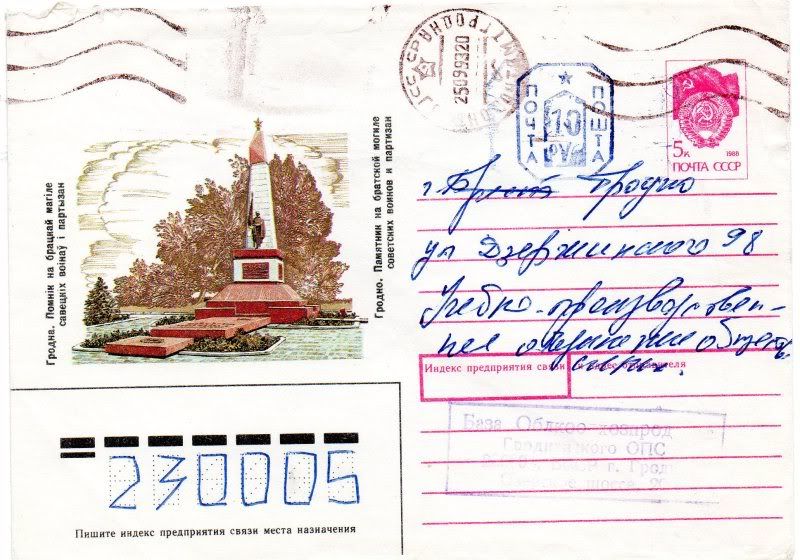 Гродна. Помнік на брацкай магіле
савецкіх воінаў і партызан
Гродно. Памятник на братской могиле
советских воинов и партизан
25099320
ПОЧТА
10
РУБ
ПОШТА
5к
1988
ПОЧТА СССР
г. Гродно
ул Дзержинского 98
Учебно-производствен-
ное
Индекс предприятия связи и адрес отправителя
База
Гродненского ОПС
г. Грод
шоссе
230005
Пишите индекс предприятия связи места назначения